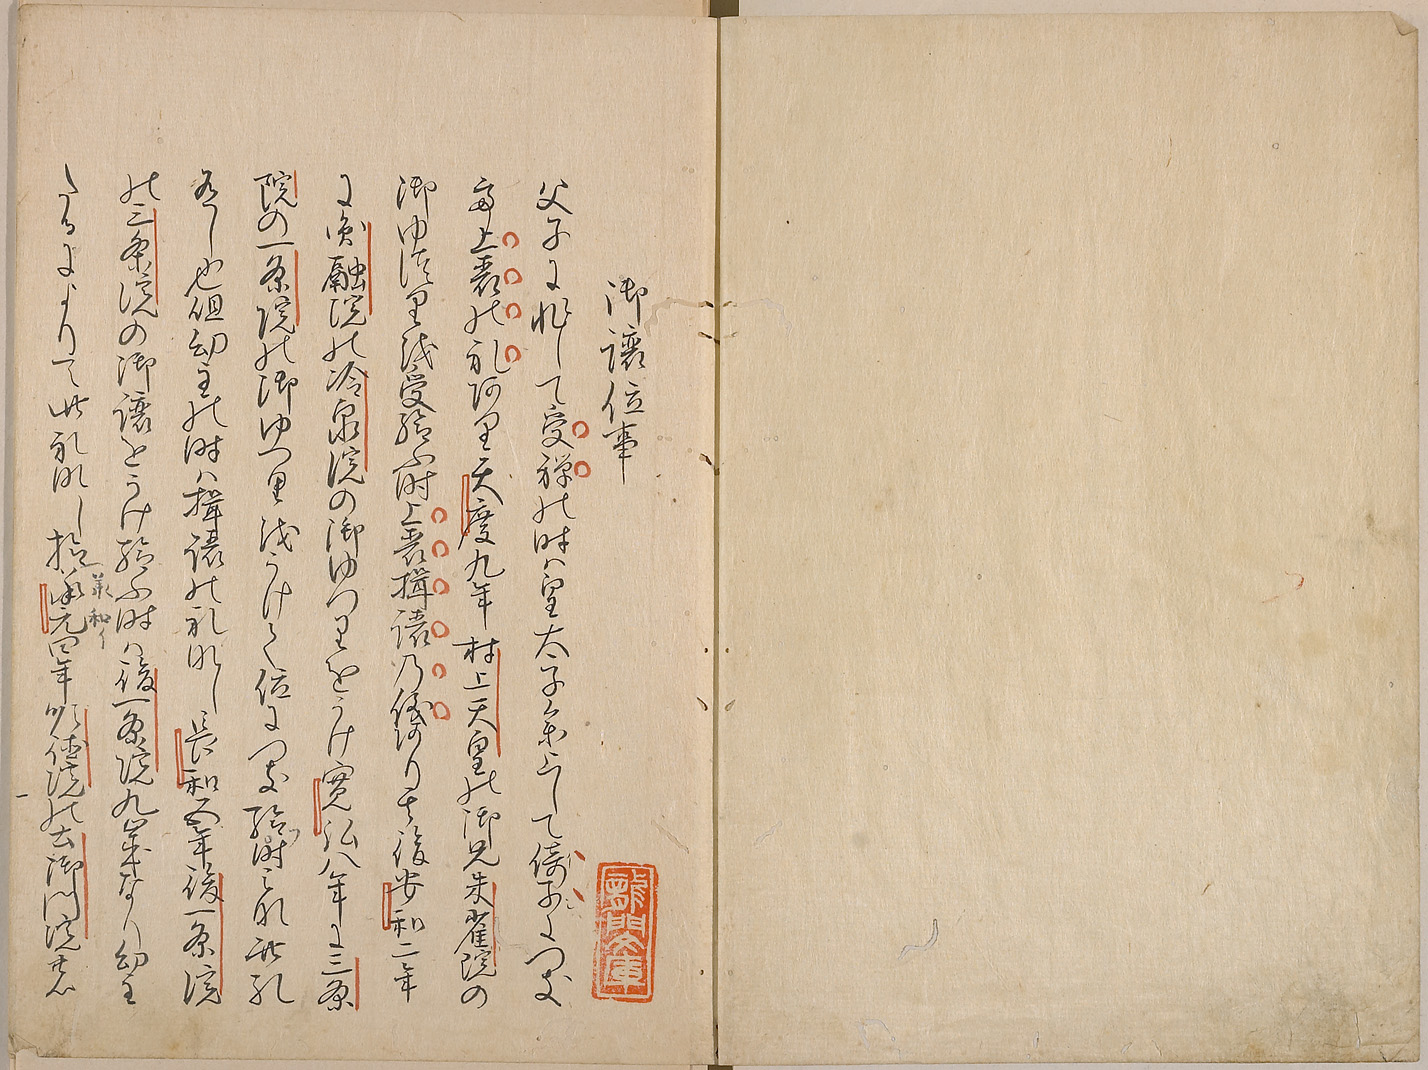 御譲位事
父子にあらすして受禅の時は皇太子参上して倚子につき
給上表の礼あり天慶九年村上天皇の御兄朱雀院の
御ゆつりを受給ふ時上表揖譲の儀あり其後安和二年
に円融院の冷泉院の御ゆつりをうけ寛弘八年に三条
院の一条院の御ゆつりをうけて位につき給時みな此礼
有し也但幼主の時は揖譲の礼なし長和五年後一条院
の三条院の御譲をうけ給ふ時は後一条院九歳なり幼主
たるによりて此礼なし抑承元四年順徳院の土御門院の
承和イ
龍門文庫